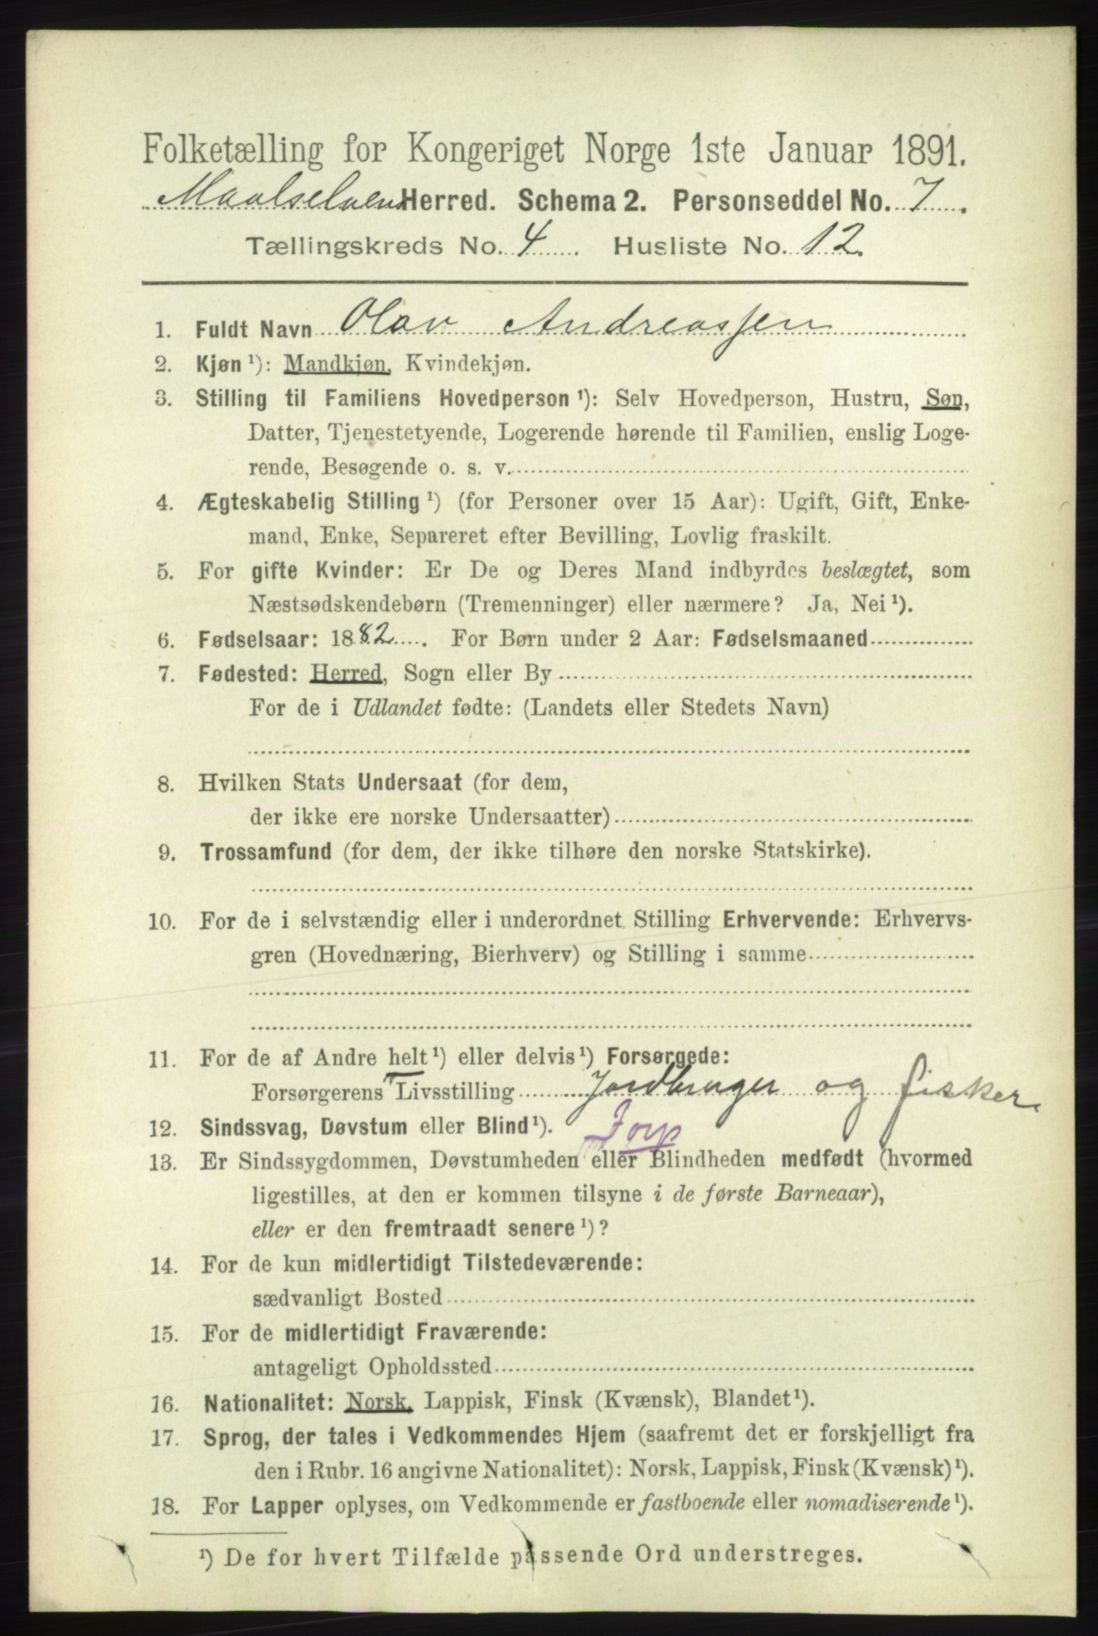 Folketælling for Kongeriget Norge 1ste Januar 1891.
Maalselven Herred. Schema 2. Personseddel No. 7.
Tællingskreds No. 4. Husliste No. 12.
1. Fuldt Navn Olav Andreassen
2. Kjøn ¹): Mandkjøn, Kvindekjøn.
3. Stilling til Familiens Hovedperson ¹): Selv Hovedperson, Hustru, Søn,
Datter, Tjenestetyende, Logerende hørende til Familien, enslig Loge-
rende, Besøgende o. s. v.
4. Ægteskabelig Stilling ¹) (for Personer over 15 Aar): Ugift, Gift, Enke-
mand, Enke, Separeret efter Bevilling, Lovlig fraskilt.
5. For gifte Kvinder: Er De og Deres Mand indbyrdes beslægtet, som
Næstsødskendebørn (Tremenninger) eller nærmere? Ja, Nei ¹).
6. Fødselsaar: 1882. For Børn under 2 Aar: Fødselsmaaned
7. Fødested: Herred, Sogn eller By
For de i Udlandet fødte: (Landets eller Stedets Navn)
8. Hvilken Stats Undersaat (for dem,
der ikke ere norske Undersaatter)
9. Trossamfund (for dem, der ikke tilhøre den norske Statskirke).
10. For de i selvstændig eller i underordnet Stilling Erhvervende: Erhvervs-
gren (Hovednæring, Bierhverv) og Stilling i samme
11. For de af Andre helt ¹) eller delvis ¹) Forsørgede:
Forsørgerens Livsstilling Jordbruger og fisker
12. Sindssvag, Døvstum eller Blind ¹). Forp
13. Er Sindssygdommen, Døvstumheden eller Blindheden medfødt (hvormed
ligestilles, at den er kommen tilsyne i de første Barneaar),
eller er den fremtraadt senere ¹)?
14. For de kun midlertidigt Tilstedeværende:
sædvanligt Bosted
15. For de midlertidigt Fraværende:
antageligt Opholdssted
16. Nationalitet: Norsk, Lappisk, Finsk (Kvænsk), Blandet ¹).
17. Sprog, der tales i Vedkommendes Hjem (saafremt det er forskjelligt fra
den i Rubr. 16 angivne Nationalitet): Norsk, Lappisk, Finsk (Kvænsk) ¹).
18. For Lapper oplyses, om Vedkommende er fastboende eller nomadiserende ¹).
¹) De for hvert Tilfælde passende Ord understreges.